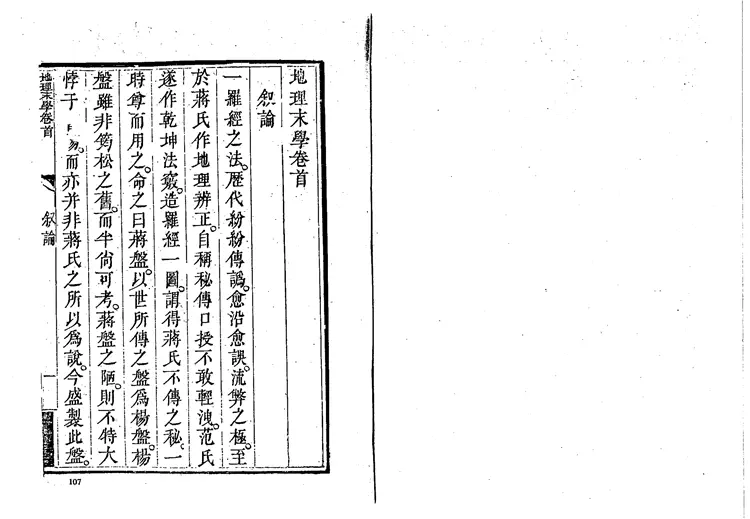 地理末學卷首
叙論
一羅經之法。歷代紛紛傳譌。愈沿愈誤。流弊之極。至
於蔣氏作地理辨正。自稱秘傳口授不敢輕洩。范氏
遂作乾坤法竅。造羅經一圖。謂得蔣氏不傳之秘。一
時尊而用之。命之曰蔣盤。以世所傳之盤爲楊盤。楊
盤雖非筠松之舊。而半尙可考。蔣盤之陋。則不特大
悖于易。而亦并非蔣氏之所以爲說。今盛製此盤。
地理末學卷首
叙論
一
107